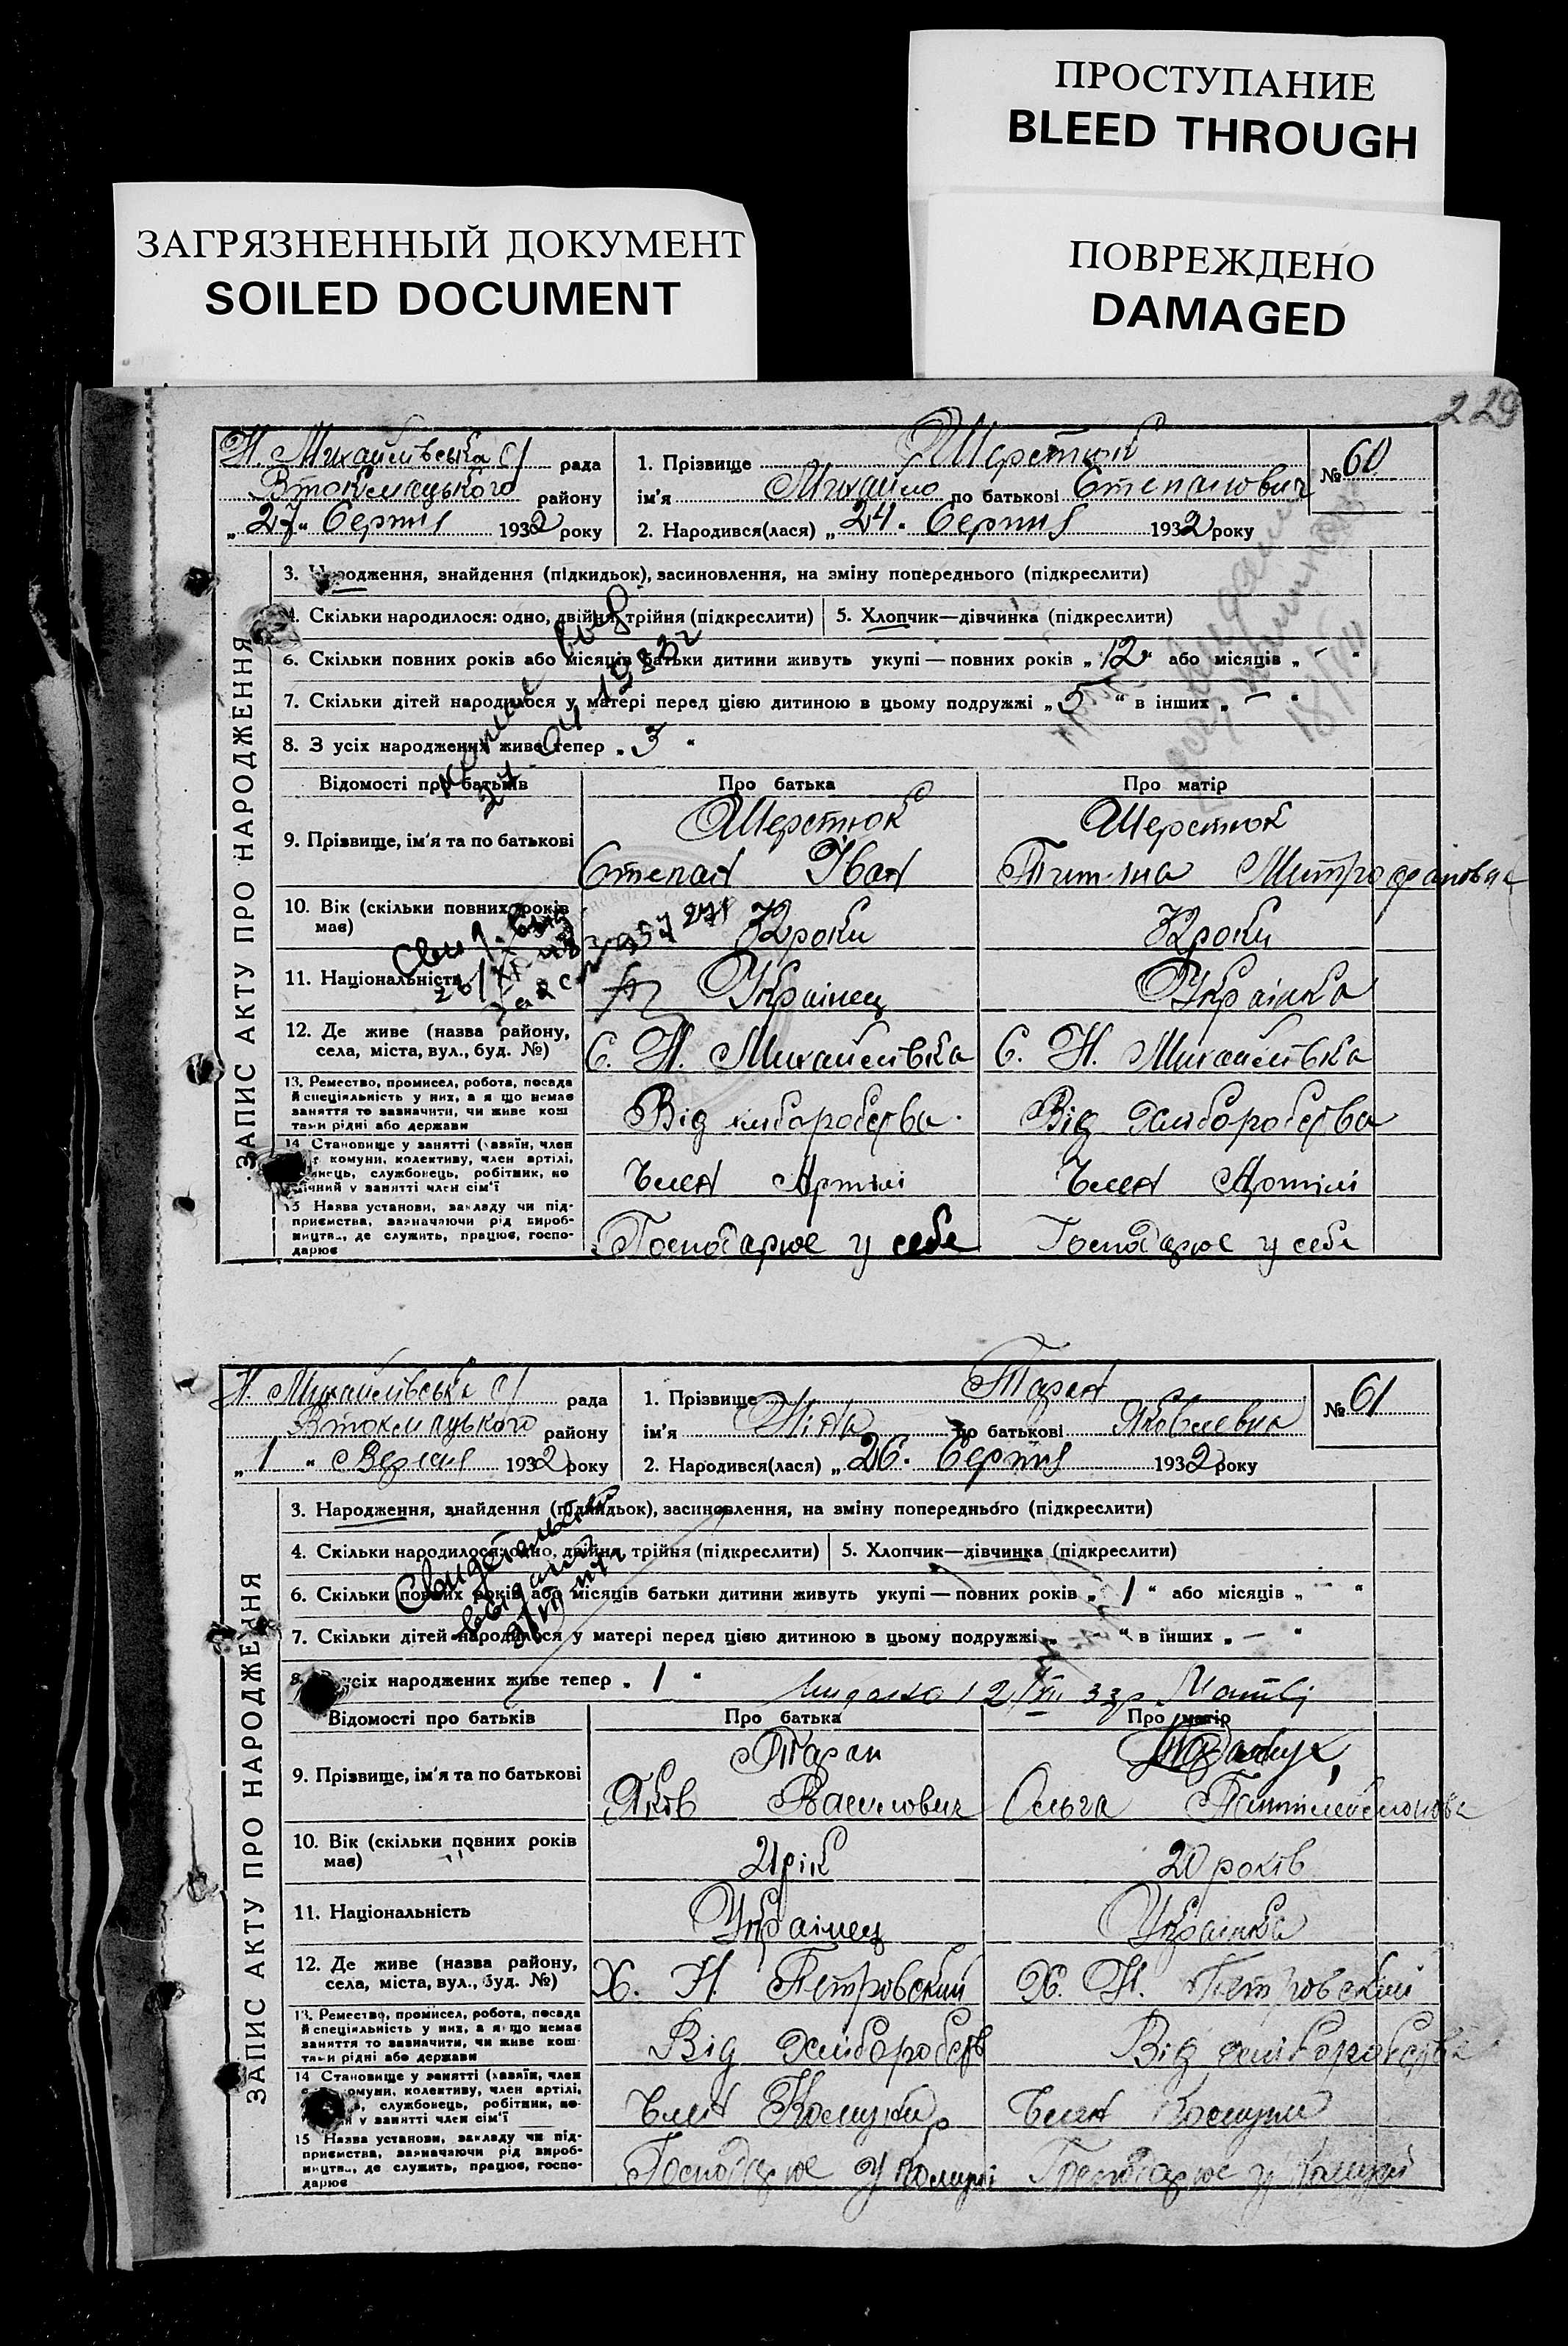 ПРОСТУПАНИЕ
BLEED THROUGH
ЗАГРЯЗНЕННЫЙ ДОКУМЕНТ
SOILED DOCUMENT
ПОВРЕЖДЕНО
DAMAGED
229
ЗАПИС АКТУ ПРО НАРОДЖЕННЯ
Н. Михайлівська с/ рада
Втокмацького району
„27" Серпня 1932 року
1. Прізвище Шерстюк
ім'я Михайло по батькові Степанович
2. Народився(лася) „24. Серпня 1932 року
№ 60
3. Народження, знайдення (підкидьок), засиновлення, на зміну попереднього (підкреслити)
4. Скільки народилося: одно, двійня, трійня (підкреслити) 5. Хлопчик—дівчинка (підкреслити)
6. Скільки повних років або місяців батьки дитини живуть укупі — повних років „12" або місяців „-"
7. Скільки дітей народилося у матері перед цією дитиною в цьому подружжі „5" в інших „-"
8. З усіх народжених живе тепер „3"
Відомості про батьків Про батька Про матір
9. Прізвище, ім'я та по батькові Шерстюк Шерстюк
Степан Іван Митрофановна
10. Вік (скільки повних років має) 32 роки 32 роки
11. Національність Українец Українка
12. Де живе (назва району, села, міста, вул., буд. №) С. Н. Михайлівка С. Н. Михайлівка
13. Ремество, промисел, робота, посада
й спеціяльність у них, а якщо немає
заняття то зазначити, чи живе кош
тами рідні або держави
Від хлиборобства Від хлиборобства
14 Становище у занятті (хазяїн, член
комуни, колективу, член артілі,
службонець, робітник, по
у занятті член сім'ї
Член Артілі Член Артілі
15 Назва установи, закладу чи під-
приємства, зазначаючи рід вироб-
ництва, де служить, працює, госпо-
дарює
Господарює у себе Господарює у себе
ЗАПИС АКТУ ПРО НАРОДЖЕННЯ
Н. Михайлівська с/ рада
Втокмацького району
„1" Вересня 1932 року
1. Прізвище Таран
ім'я Ніна по батькові Яковлевна
2. Народився(лася) „26. Серпня 1932 року
№ 61
3. Народження, знайдення (підкидьок), засиновлення, на зміну попереднього (підкреслити)
4. Скільки народилося: одно, двійня, трійня (підкреслити) 5. Хлопчик—дівчинка (підкреслити)
6. Скільки повних років або місяців батьки дитини живуть укупі — повних років „1" або місяців „-"
7. Скільки дітей народилося у матері перед цією дитиною в цьому подружжі „ " в інших „-"
8. З усіх народжених живе тепер „1"
Відомості про батьків Про батька Про матір
9. Прізвище, ім'я та по батькові Таран
Яков Василович Ольга
10. Вік (скільки повних років має) 21 рік 20 років
11. Національність Українец Українка
12. Де живе (назва району, села, міста, вул., буд. №) Х. Н. Петровский Х. Н. Петровский
13. Ремество, промисел, робота, посада
й спеціяльність у них, а якщо немає
заняття то зазначити, чи живе кош
тами рідні або держави
Від хлиборобств Від хлиборобства
14 Становище у занятті (хазяїн, член
комуни, колективу, член артілі,
службонець, робітник, по
у занятті член сім'ї
Член Комуни Член Комуни
15 Назва установи, закладу чи під-
приємства, зазначаючи рід вироб-
ництва, де служить, працює, госпо-
дарює
Господарює у комуні Господарює у комуні